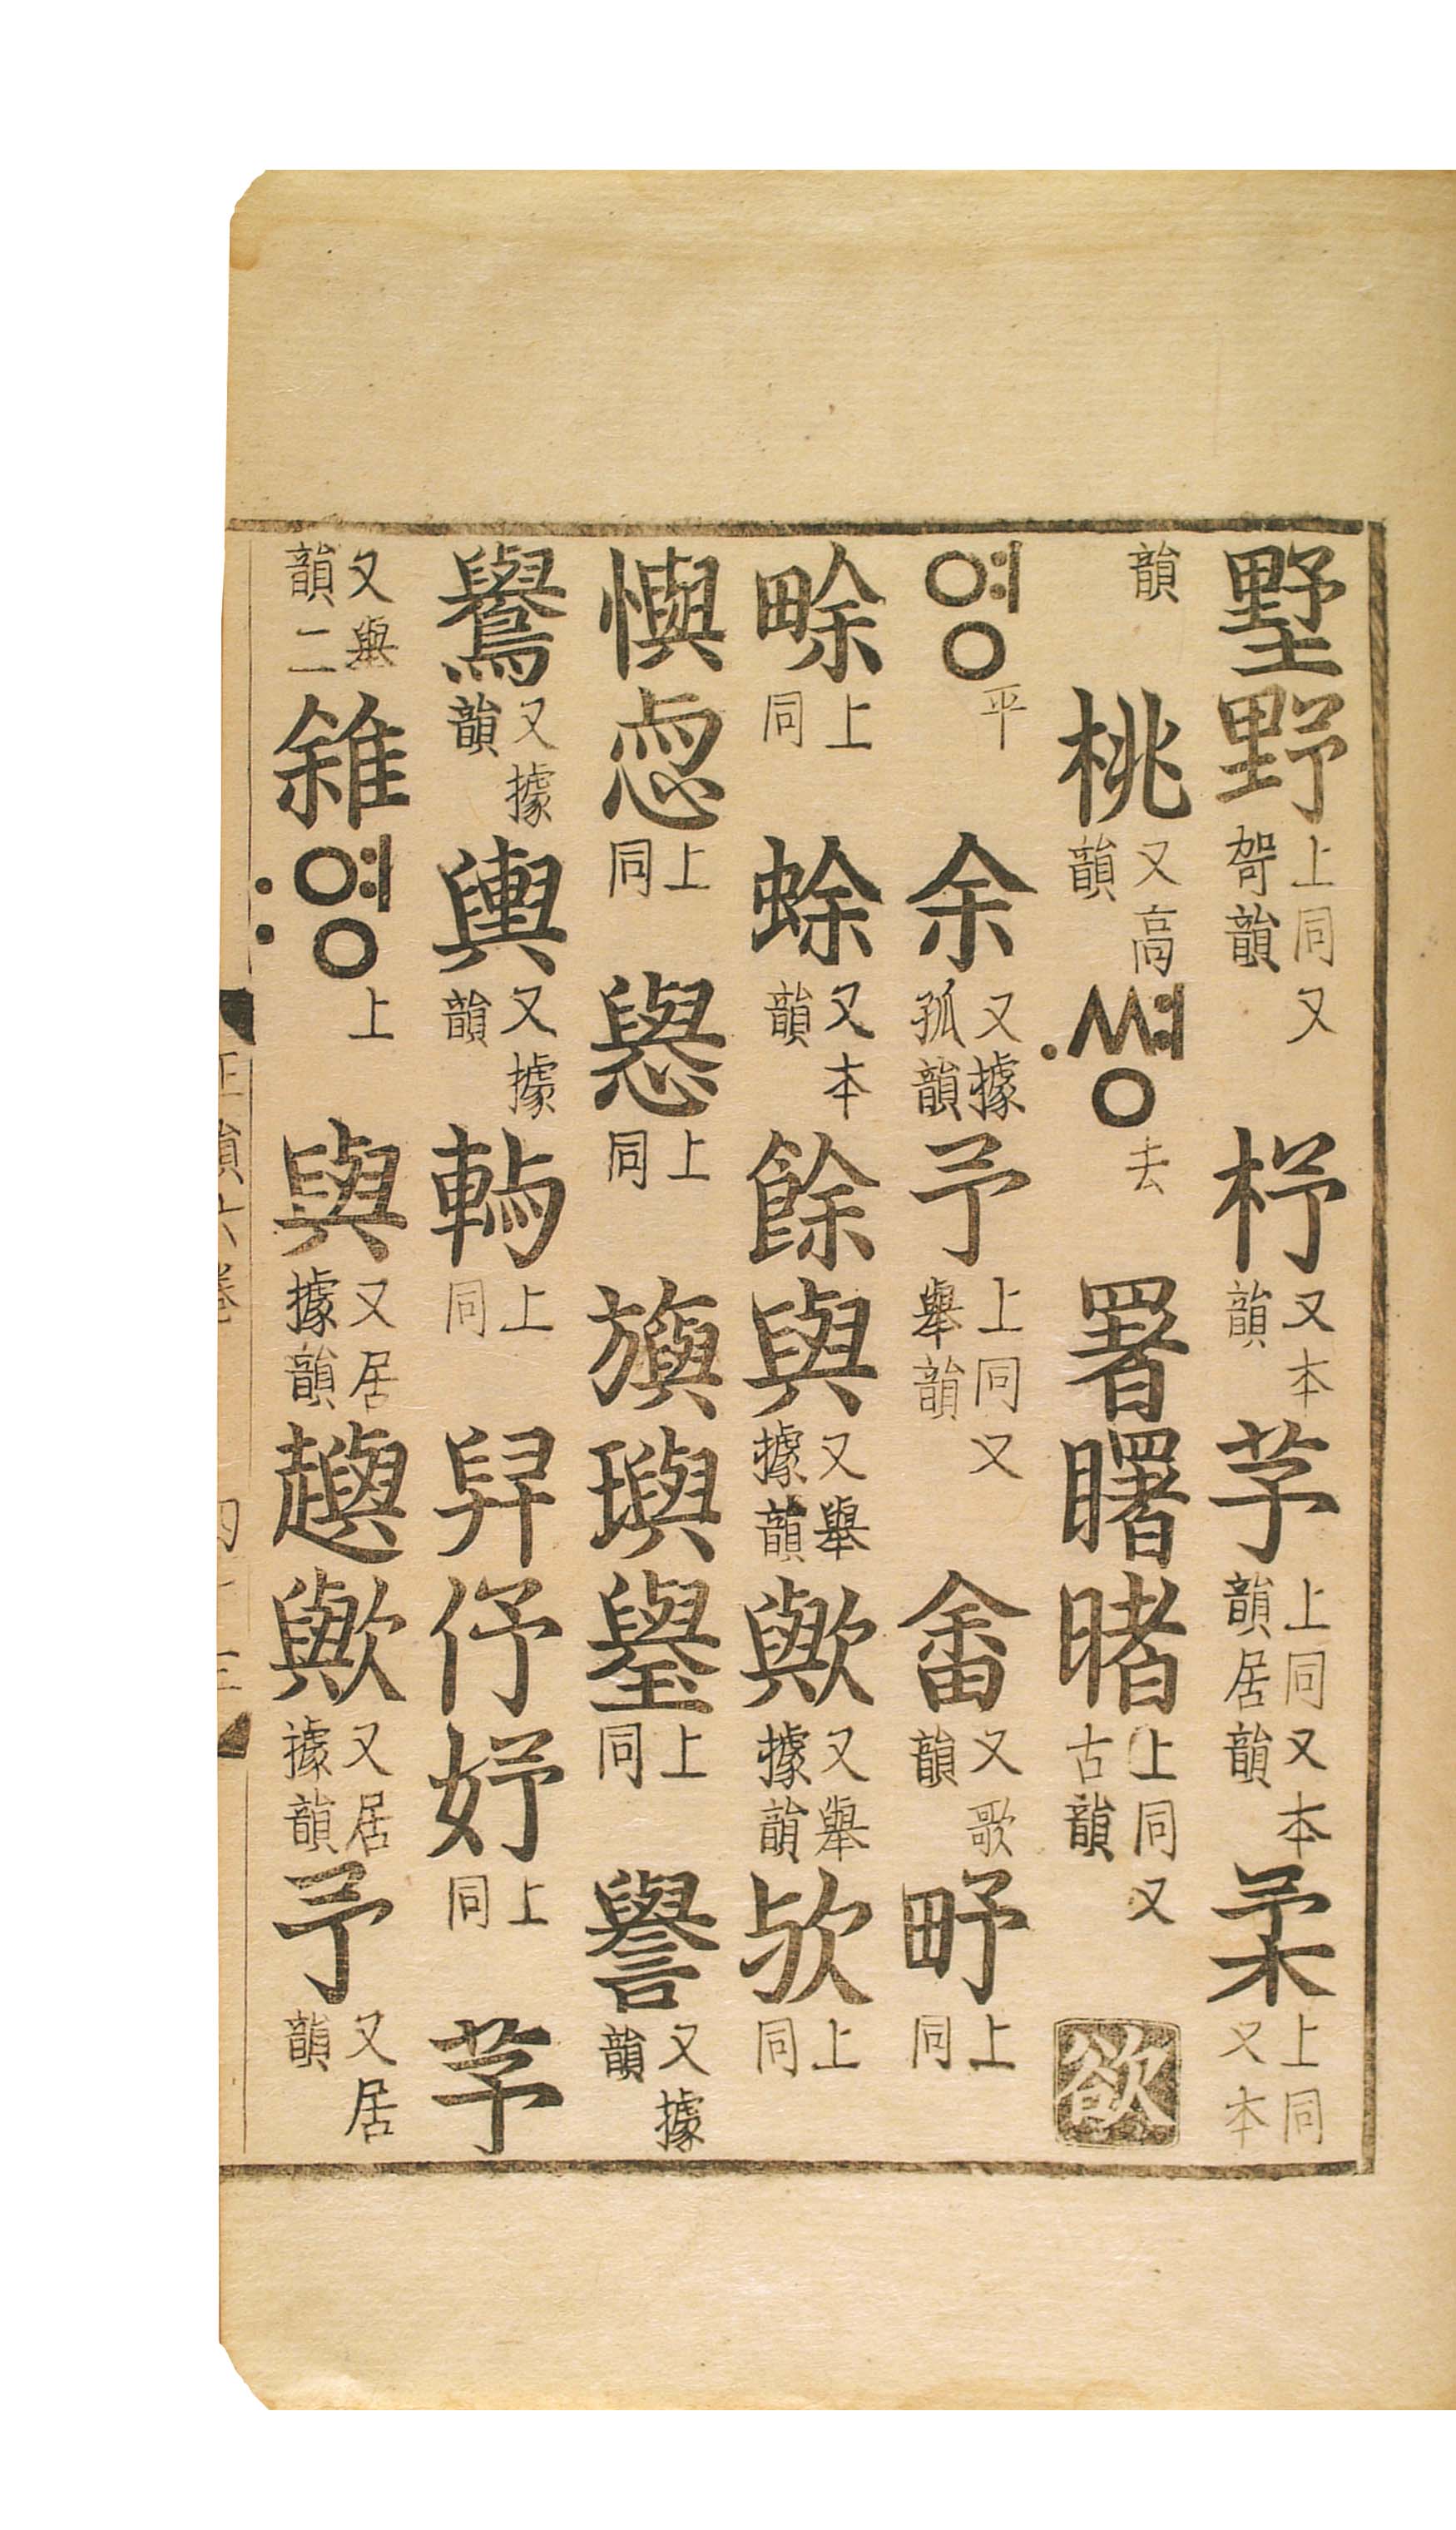 墅野上同又哿韻杼又本韻芧上同又本韻居韻柔上同又本
韻桃又高韻·쎵去署曙睹上同又古韻欲
영平余又據孤韻予上同又舉韻畬又歌韻上同
畭上同蜍又本韻餘與又舉據韻歟又舉據韻欤上同
懙悆上同上同旟璵上同譽又據韻
鸒又據韻輿又據韻上同舁伃妤上同芧
又與韻二雓:영上與又居據韻歟又居據韻予又居韻